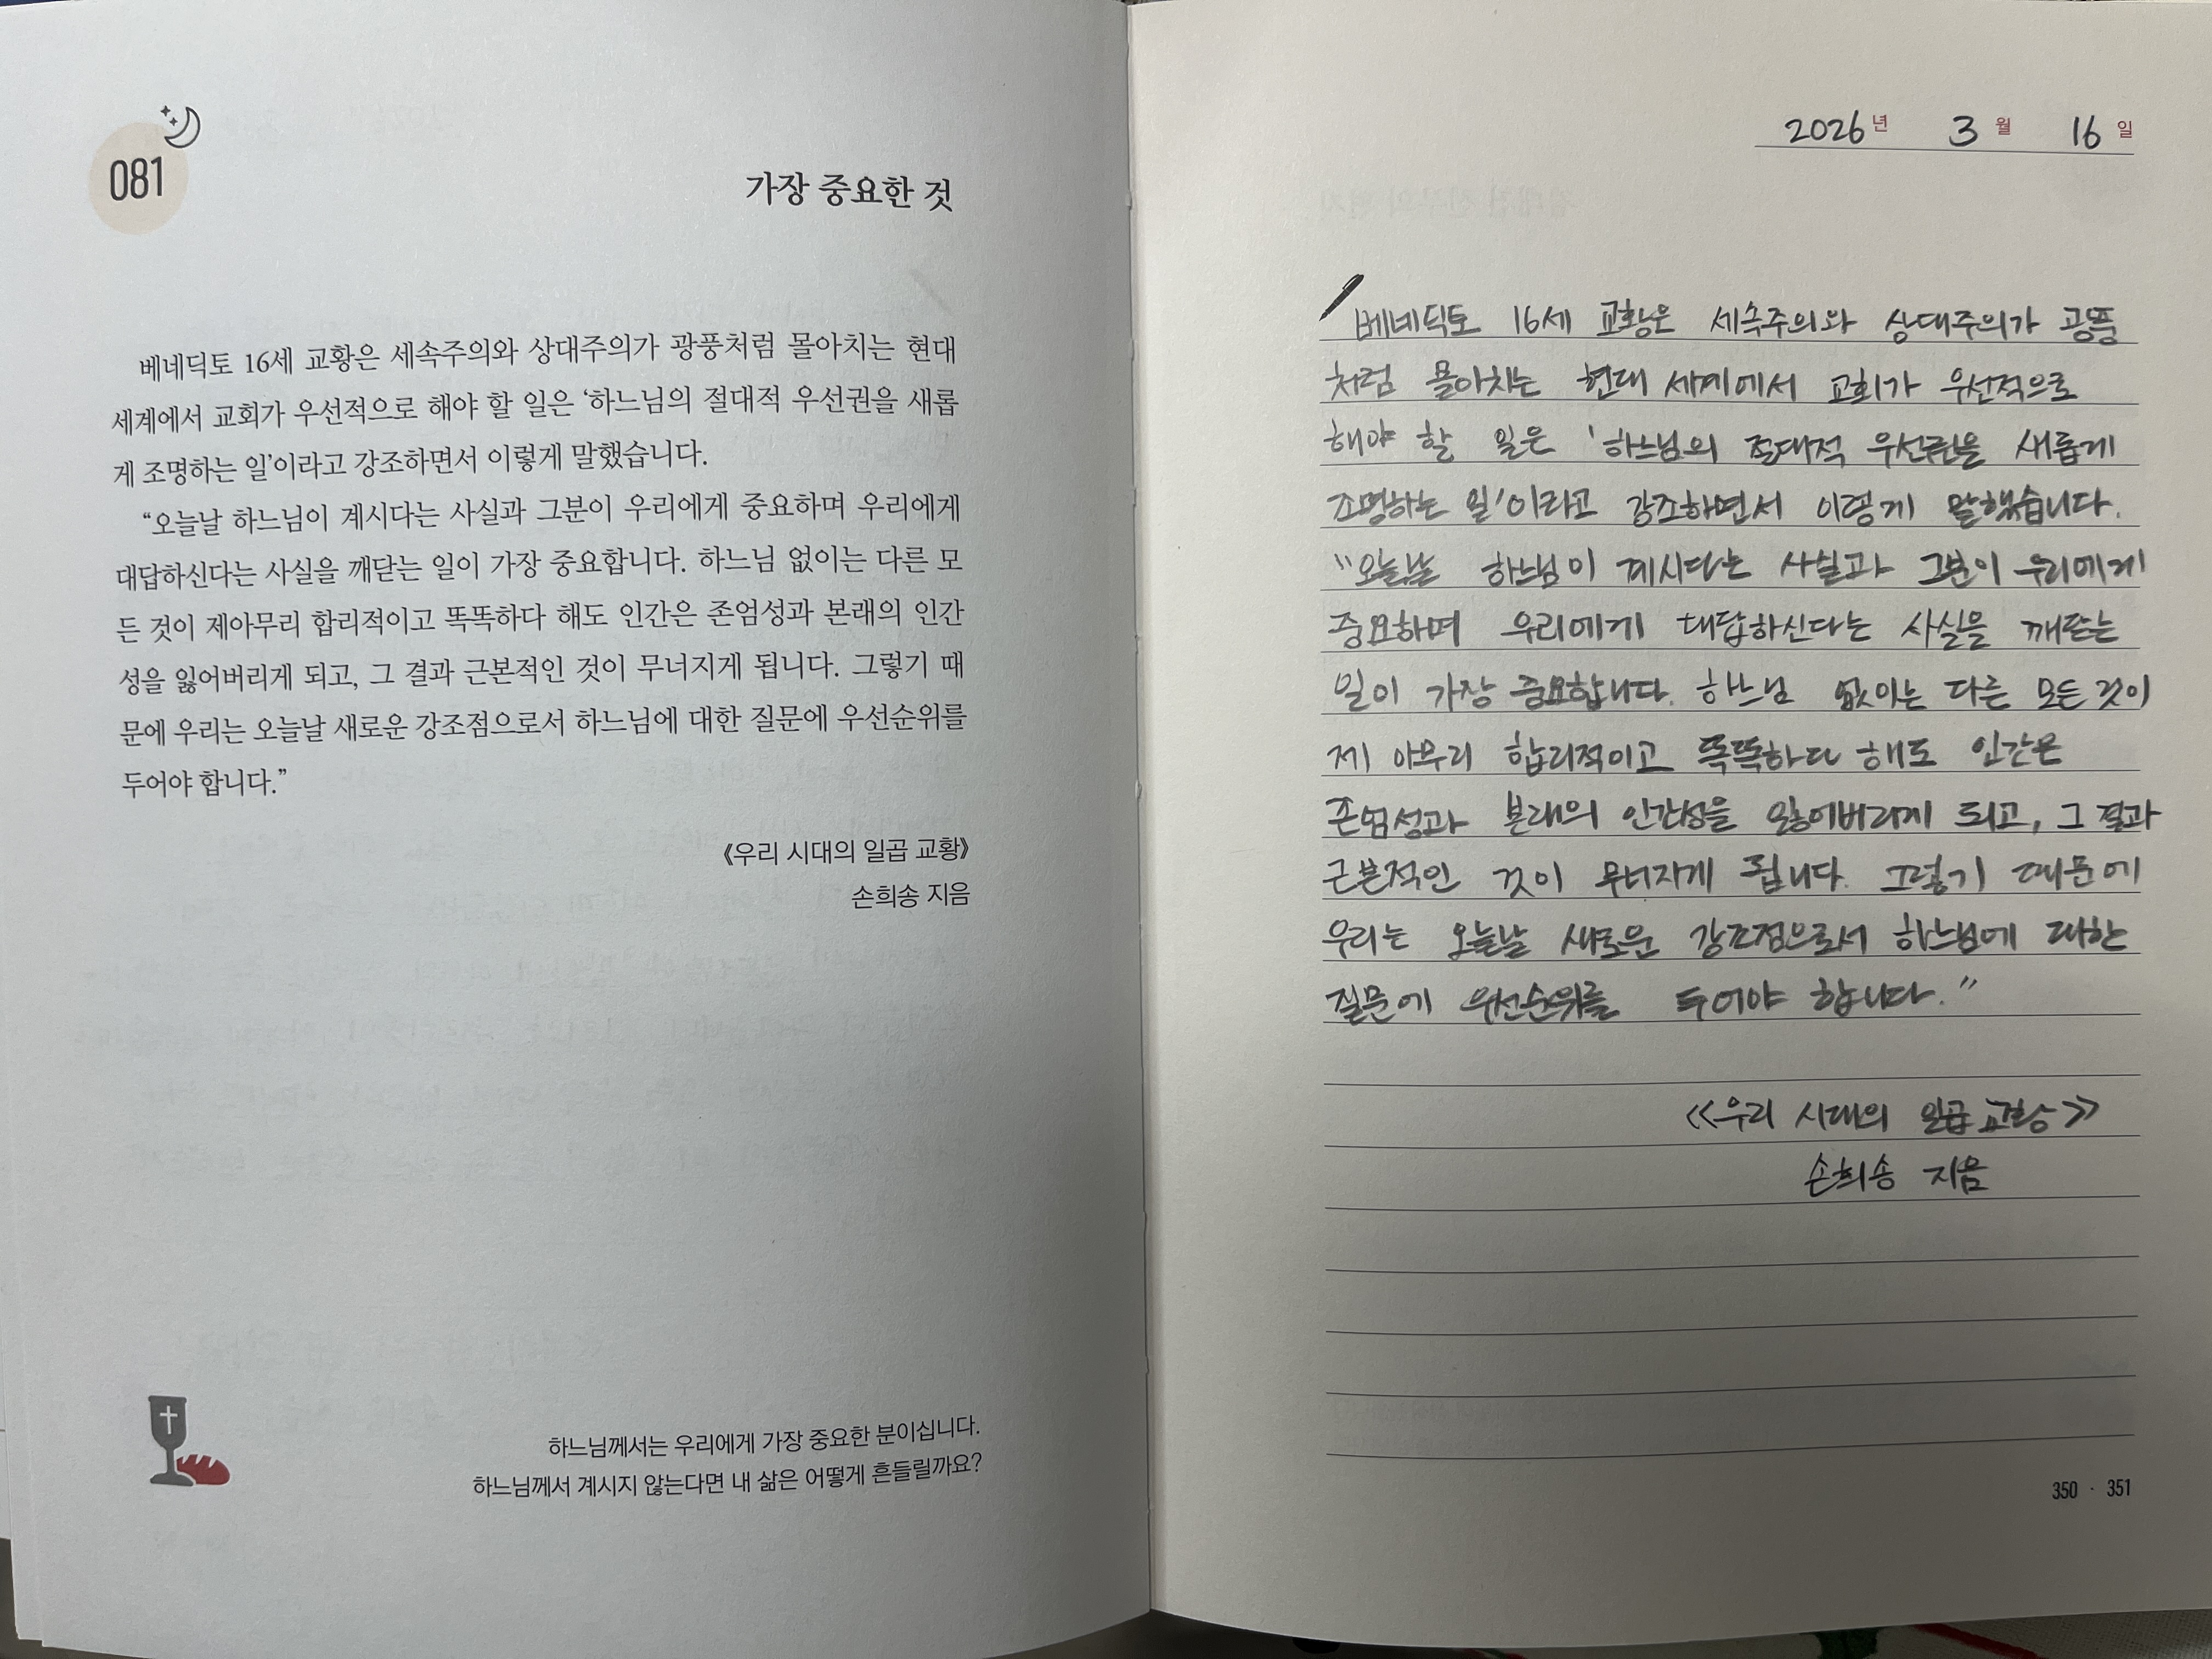 081
가장 중요한 것
베네딕토 16세 교황은 세속주의와 상대주의가 광풍처럼 몰아치는 현대
세계에서 교회가 우선적으로 해야 할 일은 ‘하느님의 절대적 우선권을 새롭
게 조명하는 일’이라고 강조하면서 이렇게 말했습니다.
“오늘날 하느님이 계시다는 사실과 그분이 우리에게 중요하며 우리에게
대답하신다는 사실을 깨닫는 일이 가장 중요합니다. 하느님 없이는 다른 모
든 것이 제아무리 합리적이고 똑똑하다 해도 인간은 존엄성과 본래의 인간
성을 잃어버리게 되고, 그 결과 근본적인 것이 무너지게 됩니다. 그렇기 때
문에 우리는 오늘날 새로운 강조점으로서 하느님에 대한 질문에 우선순위를
두어야 합니다.”
《우리 시대의 일곱 교황》
손희송 지음
하느님께서는 우리에게 가장 중요한 분이십니다.
하느님께서 계시지 않는다면 내 삶은 어떻게 흔들릴까요?
2026년 3월 16일
베네딕토 16세 교황은 세속주의와 상대주의가 광풍
처럼 몰아치는 현대 세계에서 교회가 우선적으로
해야 할 일은 '하느님의 절대적 우선권을 새롭게
조명하는 일'이라고 강조하면서 이렇게 말했습니다.
"오늘날 하느님이 계시다는 사실과 그분이 우리에게
중요하며 우리에게 대답하신다는 사실을 깨닫는
일이 가장 중요합니다. 하느님 없이는 다른 모든 것이
제 아무리 합리적이고 똑똑하다 해도 인간은
존엄성과 본래의 인간성을 잃어버리게 되고, 그 결과
근본적인 것이 무너지게 됩니다. 그렇기 때문에
우리는 오늘날 새로운 강조점으로서 하느님에 대한
질문에 우선순위를 두어야 합니다."
<<우리 시대의 일곱 교황>>
손희송 지음
350 · 351